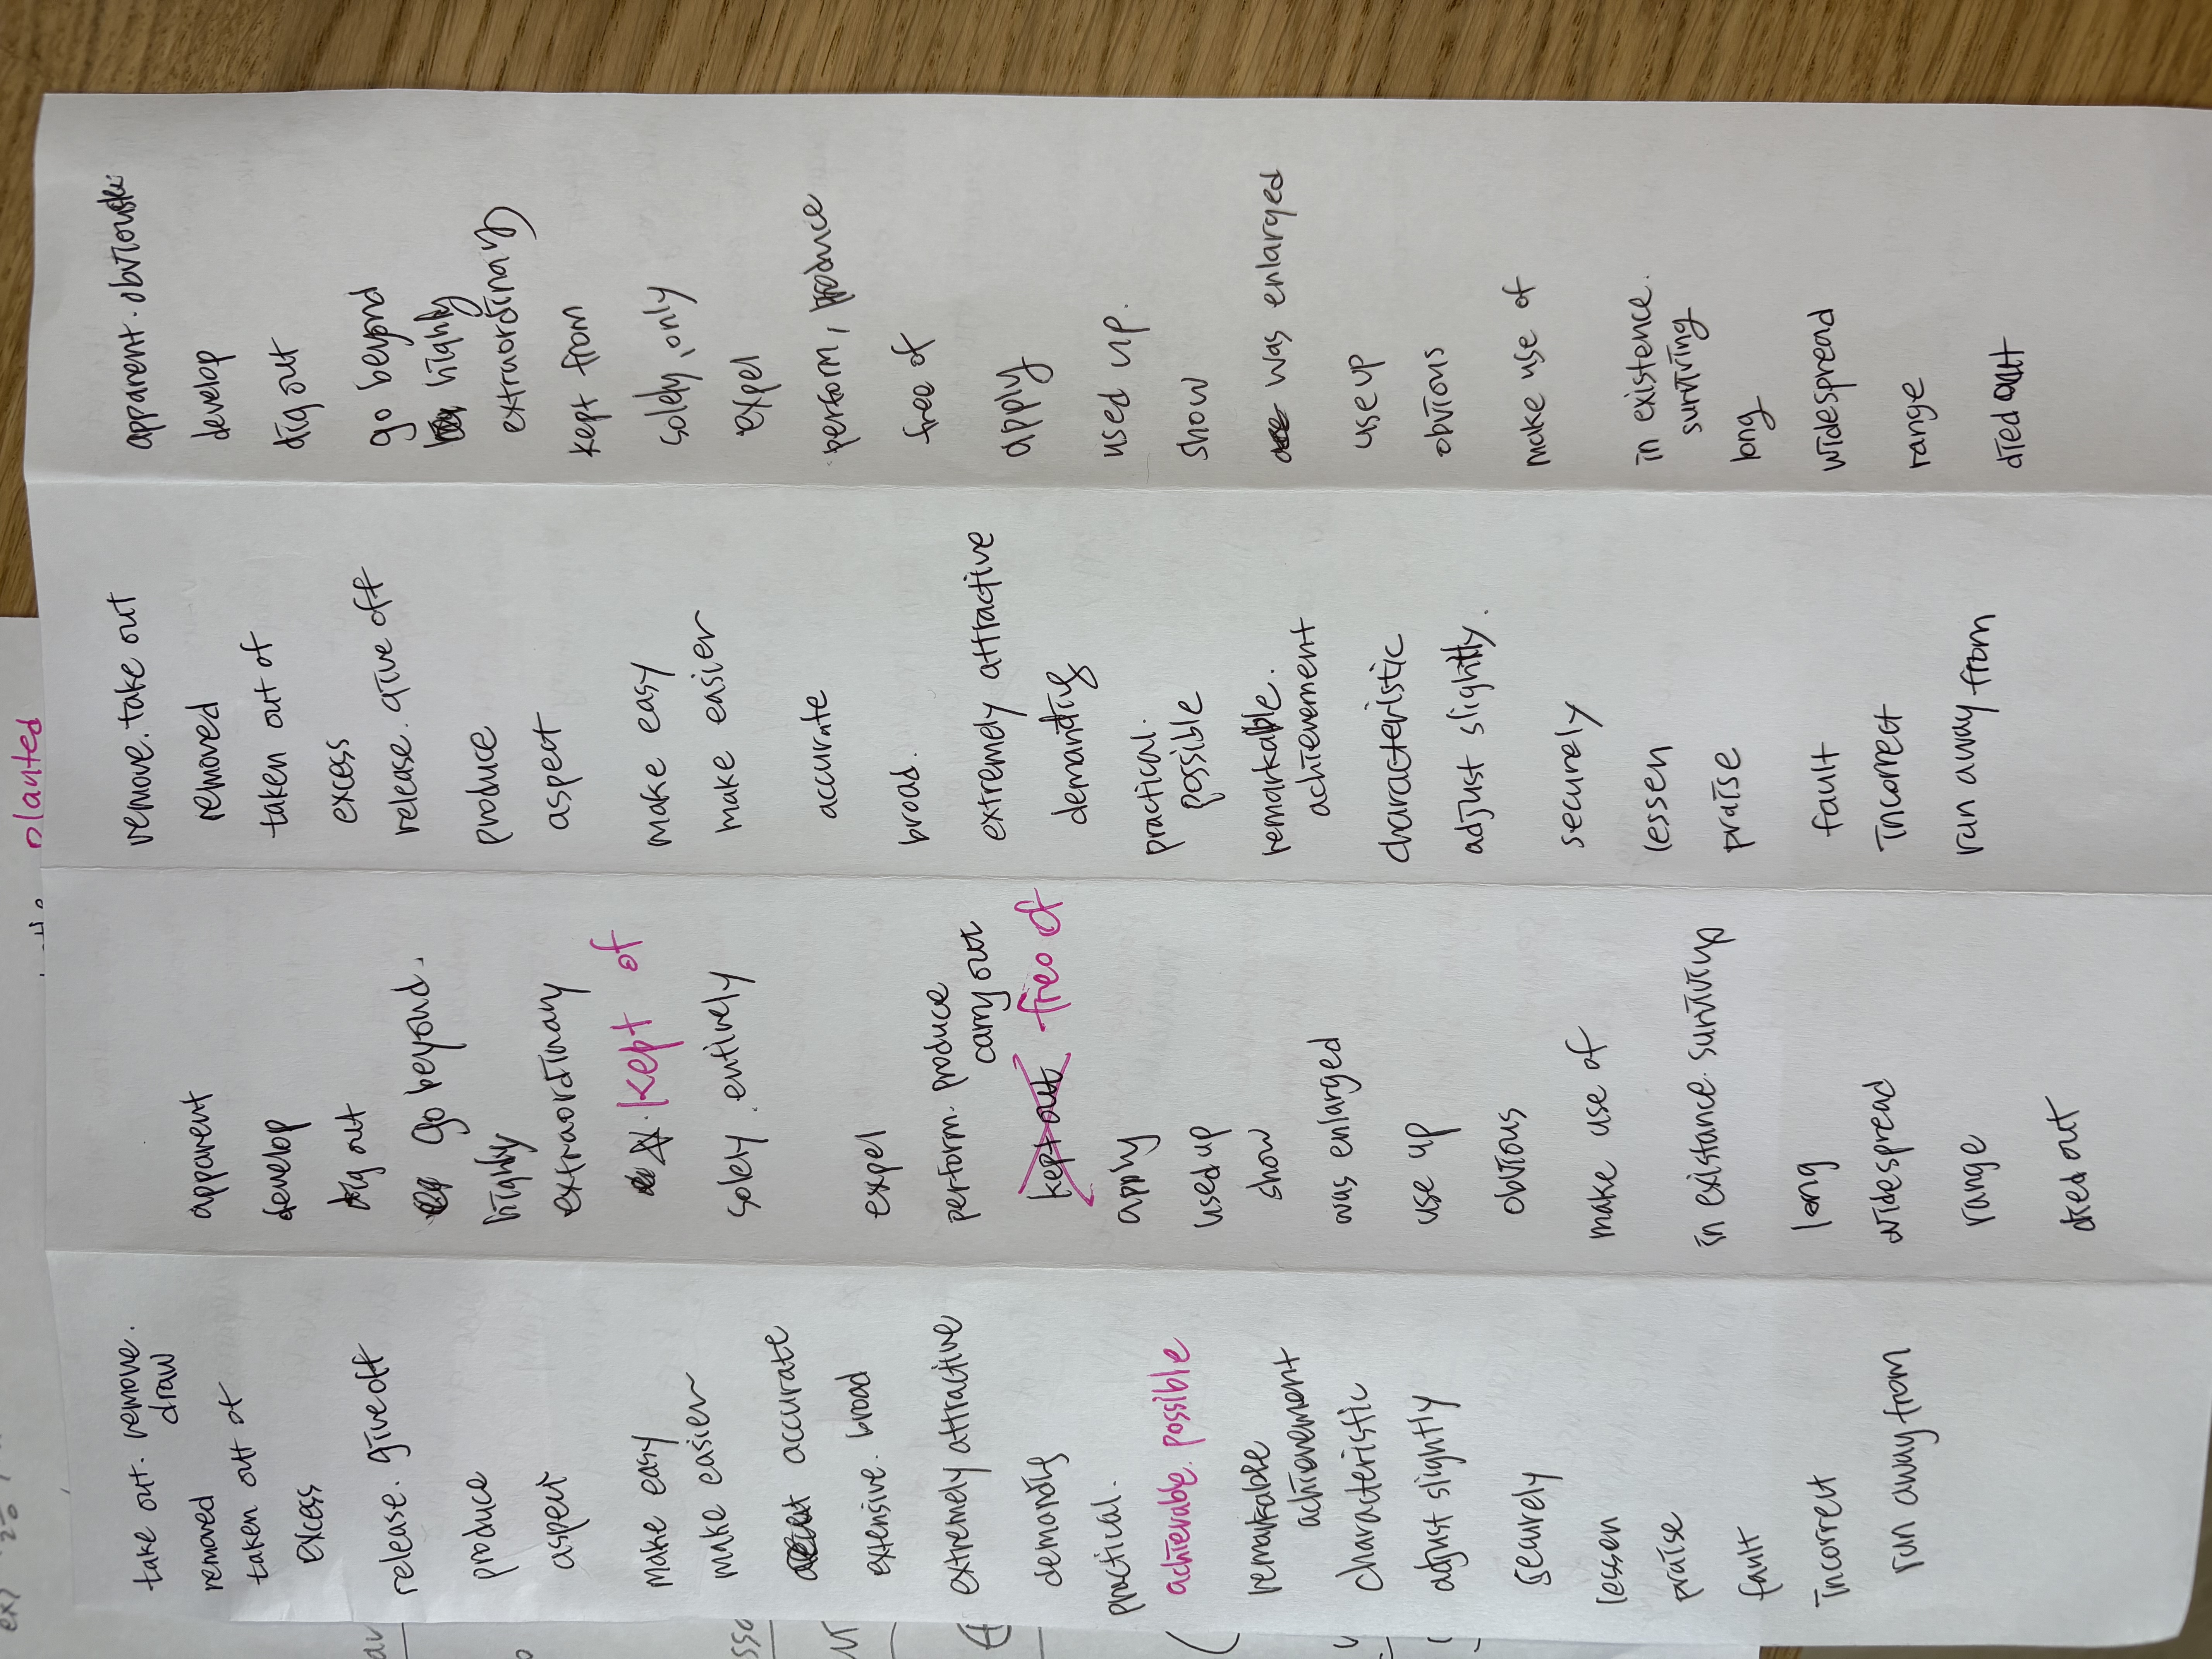 planted
take out. remove.
draw
removed
taken out of
excess
release. give off
produce
aspect
make easy
make easier
accurate
extensive. broad
extremely attractive
demandig
practical.
achievable. possible
remarkable
achievement
characteristic
adjust slightly
securely
lessen
praise
fault
incorrect
run away from
apparent
develop
dig out
go beyond.
highly
extraordinary
kept of
solely. entirely
expel
perform. produce
carry out
kept out free of
apply
used up
show
was enlarged
use up
obvious
make use of
in existance. surviving
long
widespread
range
died out
remove. take out
removed
taken out of
excess
release. give off
produce
aspect
make easy
make easier
accurate
broad.
extremely attractive
demandig
practical.
possible
remarkable.
achievement
characteristic
adjust slightly.
securely
lessen
praise
fault
incorrect
run away from
apparent. obvious
develop
dig out
go beyond
highly
extraordinary
kept from
solely, only
expel
perform, produce
free of
apply
used up.
show
was enlarged
use up
obvious
make use of
in existence.
surviving
long
widespread
range
died out